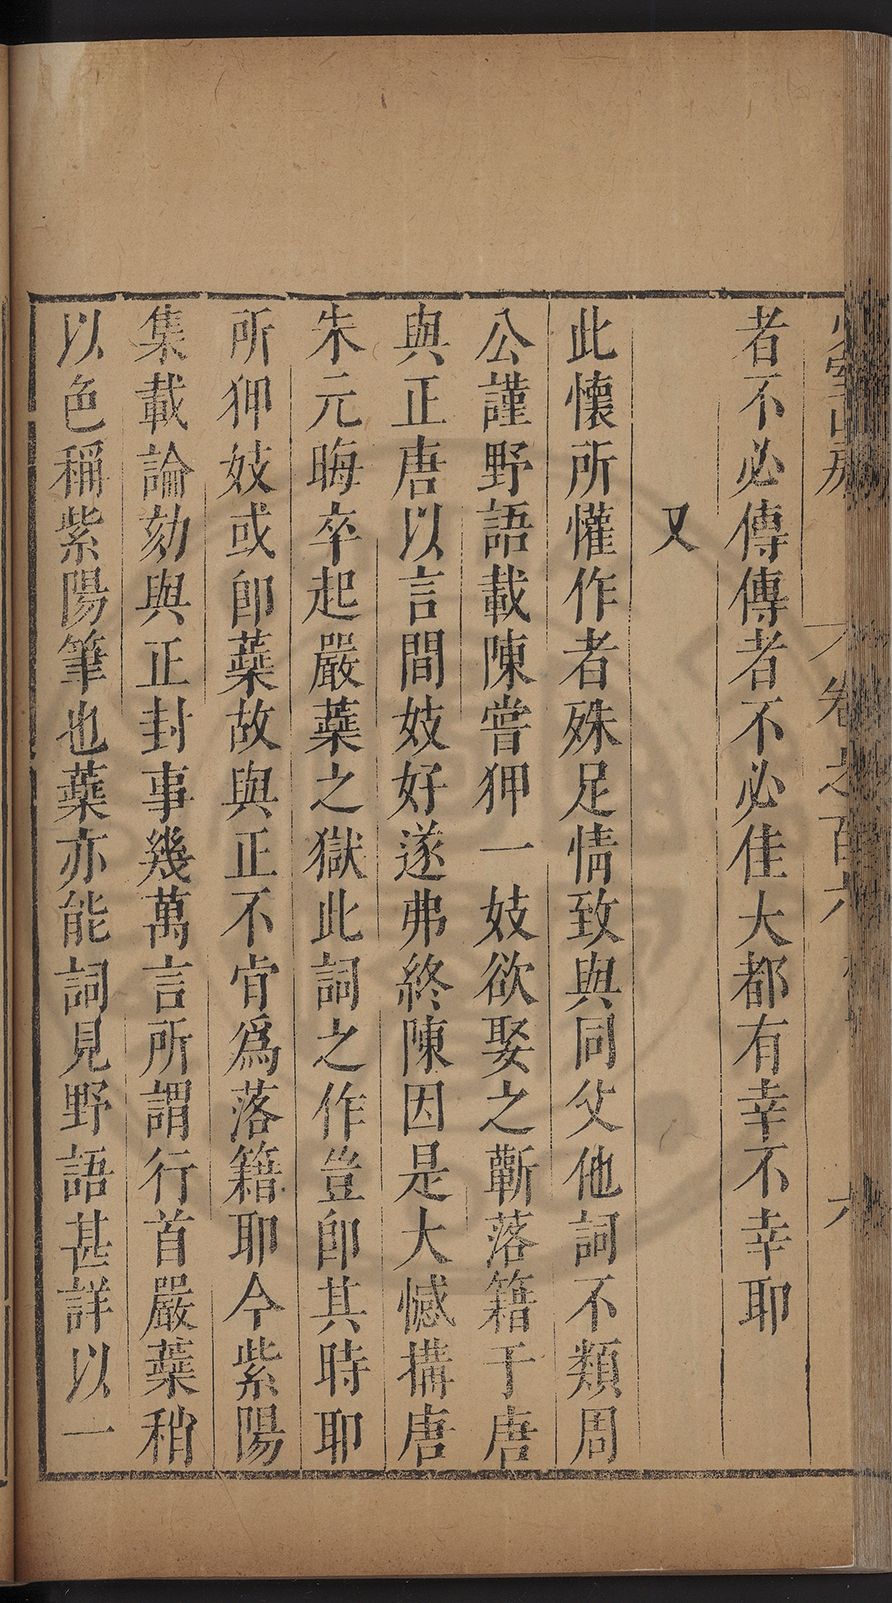 少室山房
卷之百六
六
者不必傳傳者不必佳大都有幸不幸耶
又
此懷所懽作者殊足情致與同父他詞不類周
公謹野語載陳嘗狎一妓欲娶之蘄落籍于唐
與正唐以言間妓好遂弗終陳因是大憾搆唐
朱元晦卒起嚴蘂之獄此詞之作豈卽其時耶
所狎妓或卽蘂故與正不肯爲落籍耶今紫陽
集載論劾與正封事幾萬言所謂行首嚴蘂稍
以色稱紫陽筆也蘂亦能詞見野語甚詳以一